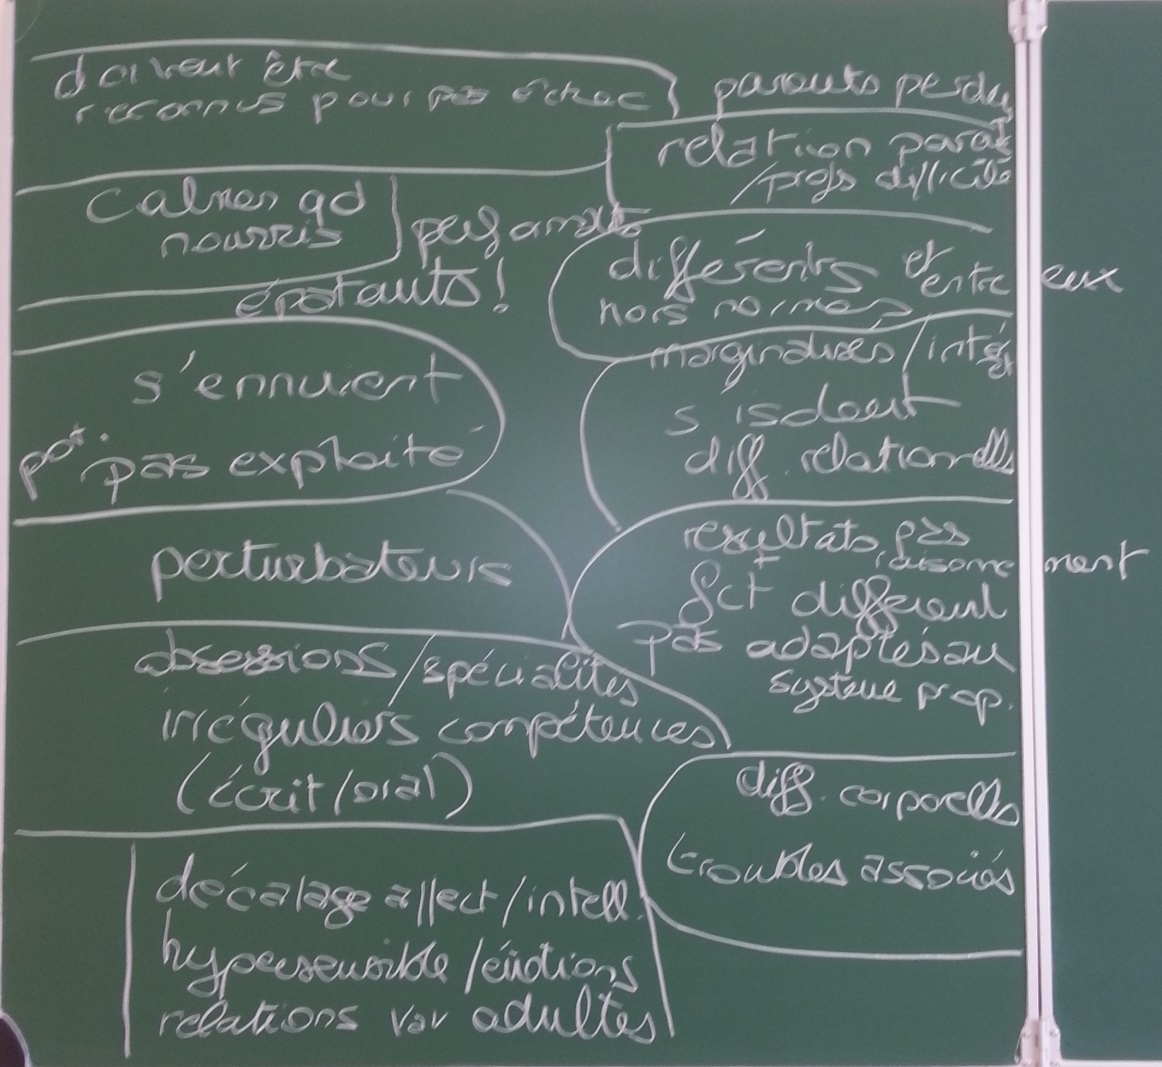 doivent être
reconnus pour pas échec
calmes qd
nourris
performants
épatants!
s'ennuient
pot. pas exploité
perturbateurs
obsessions/spécialités
irréguliers compétences
(écrit/oral)
décalage affect/intell.
hypersensible/émotions
relations vav adultes
parents perdus
relation parent
/profs difficile
différents et entre eux
hors normes
marginalisés/intég
s'isolent
diff. relationnelles
resultats pas
+ raisonnement
fct différent
pas adaptés au
systeme prop.
diff. corporelles
troubles associés